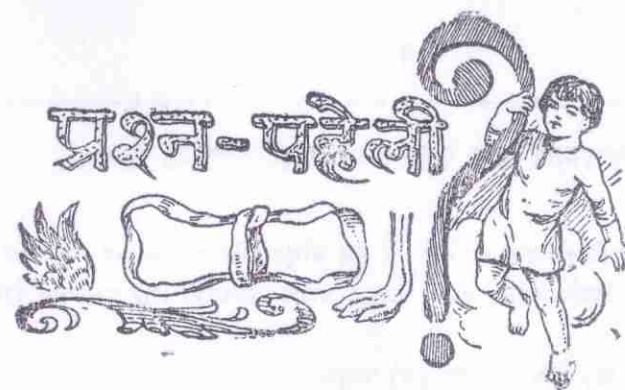 प्रश्न-पहेली
?